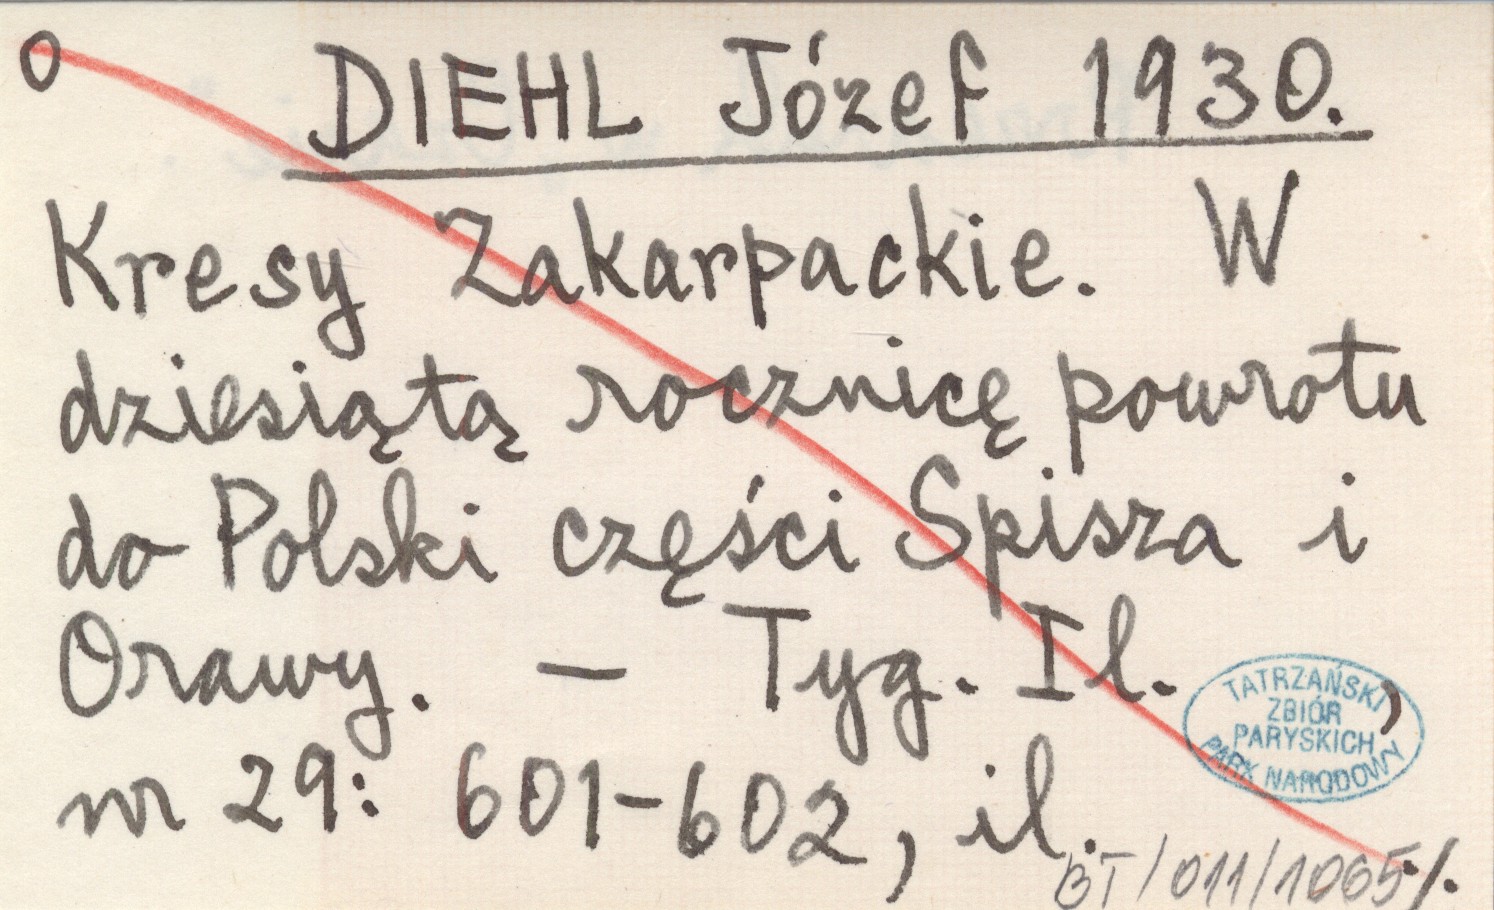 O
DIEHL Józef 1930.
Kresy Zakarpackie. W
dziesiątą rocznicę powrotu
do Polski części Spisza i
Orawy. – Tyg. Il. ,
nr 29: 601-602, il.
TATRZAŃSKI
ZBIÓR
PARYSKICH
PARK NARODOWY
BT/011/1065 ./.